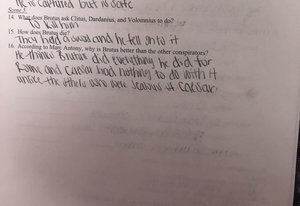 He is captured but is safe
Scene 5
14. What does Brutus ask Clitus, Dardanius, and Volumnius to do?
To kill him
15. How does Brutus die?
They hold a sword and he fell onto it
16. According to Mary Antony, why is Brutus better than the other conspirators?
He thinks Brutus did everything he did for
Rome and Caesar had nothing to do with it
unlike the others who were jealous of Caesar.